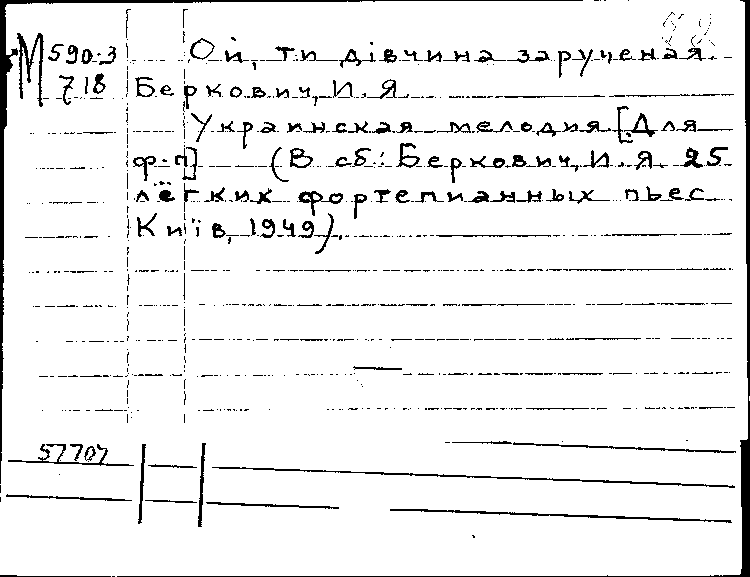 М 590-3 Ой, ти дівчина зарученая.
718 Беркович, И. Я.
Украинская мелодия [Для
ф-п] (В сб: Беркович, И. Я. 25
лёгких фортепианных пьес.
Київ, 1949).
57707